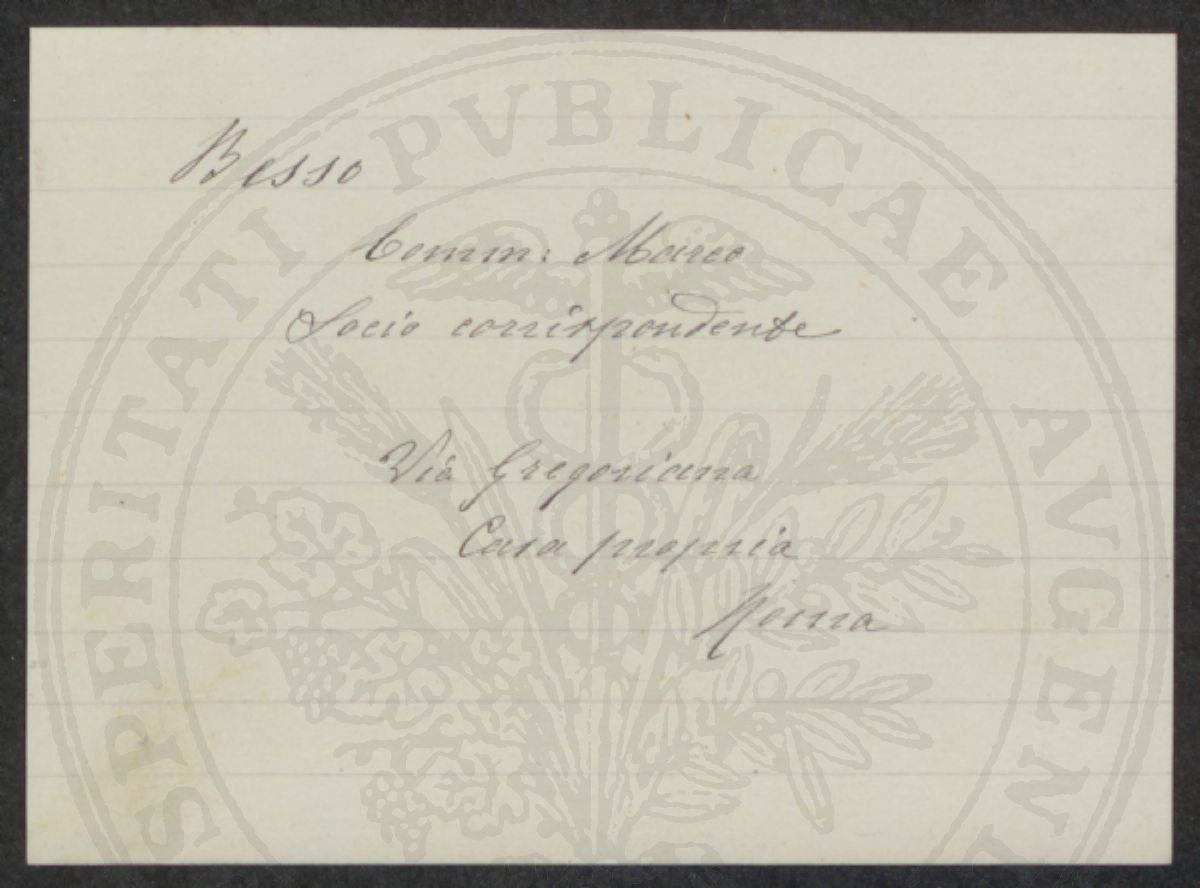 PROSPERITATI PVBLICAE AVGENDAE
Besso
Comm: Marco
Socio corrispondente
Via Gregoriana
Casa propria
Roma